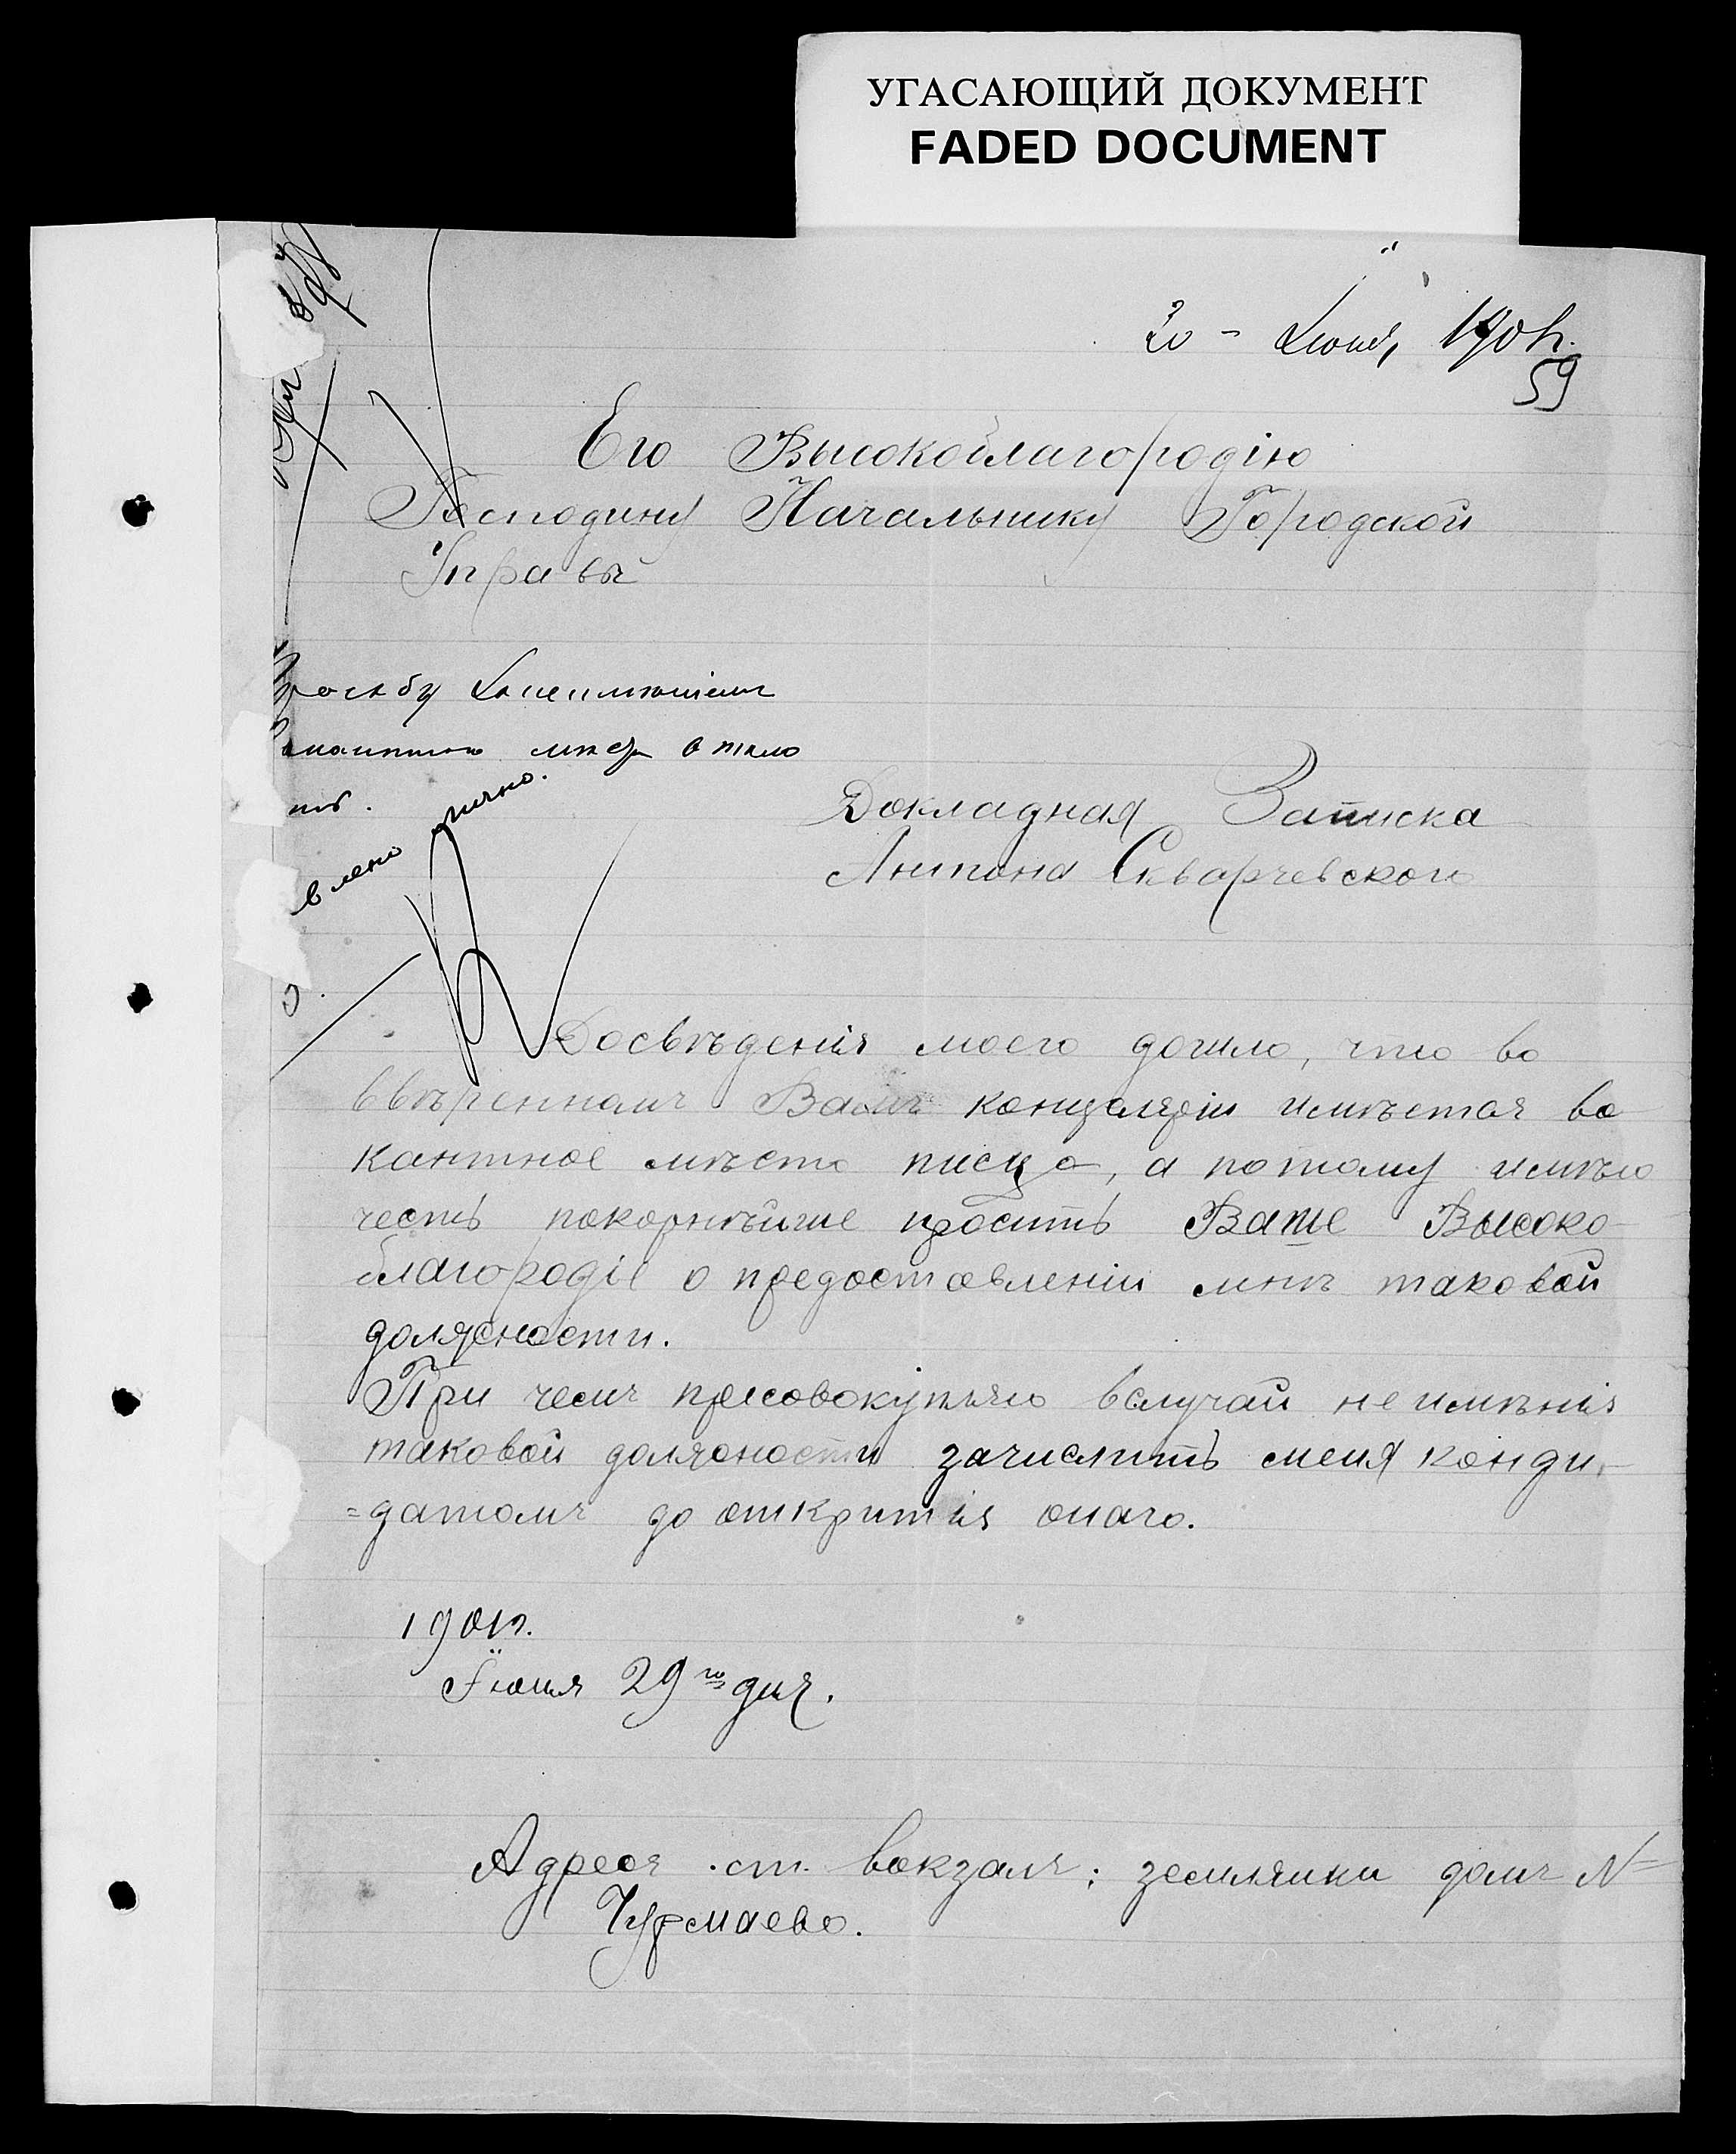 УГАСАЮЩИЙ ДОКУМЕНТ
FADED DOCUMENT
30 - Июня, 1901г.
59
Его Высокоблагородію
Господину Начальнику Городской
Управы
влено лично.
Докладная Записка
Антона Скварчевского
Досвѣденія моего дошло, что во
ввѣренномъ Вамъ канцеляріи имѣется ва
кантное мѣсто писца, а потому имѣю
честь покорнѣйше просить Ваше Высоко
благородіе о предоставленіи мнѣ таковой
должности.
При чемъ присовокупляю вслучаи не имѣнія
таковой должности зачислить меня конди-
=датомъ до открытія онаго.
1901г.
Іюня 29го дня.
Адресъ ст. вокзалъ; землянки домъ №
Чурмаево.